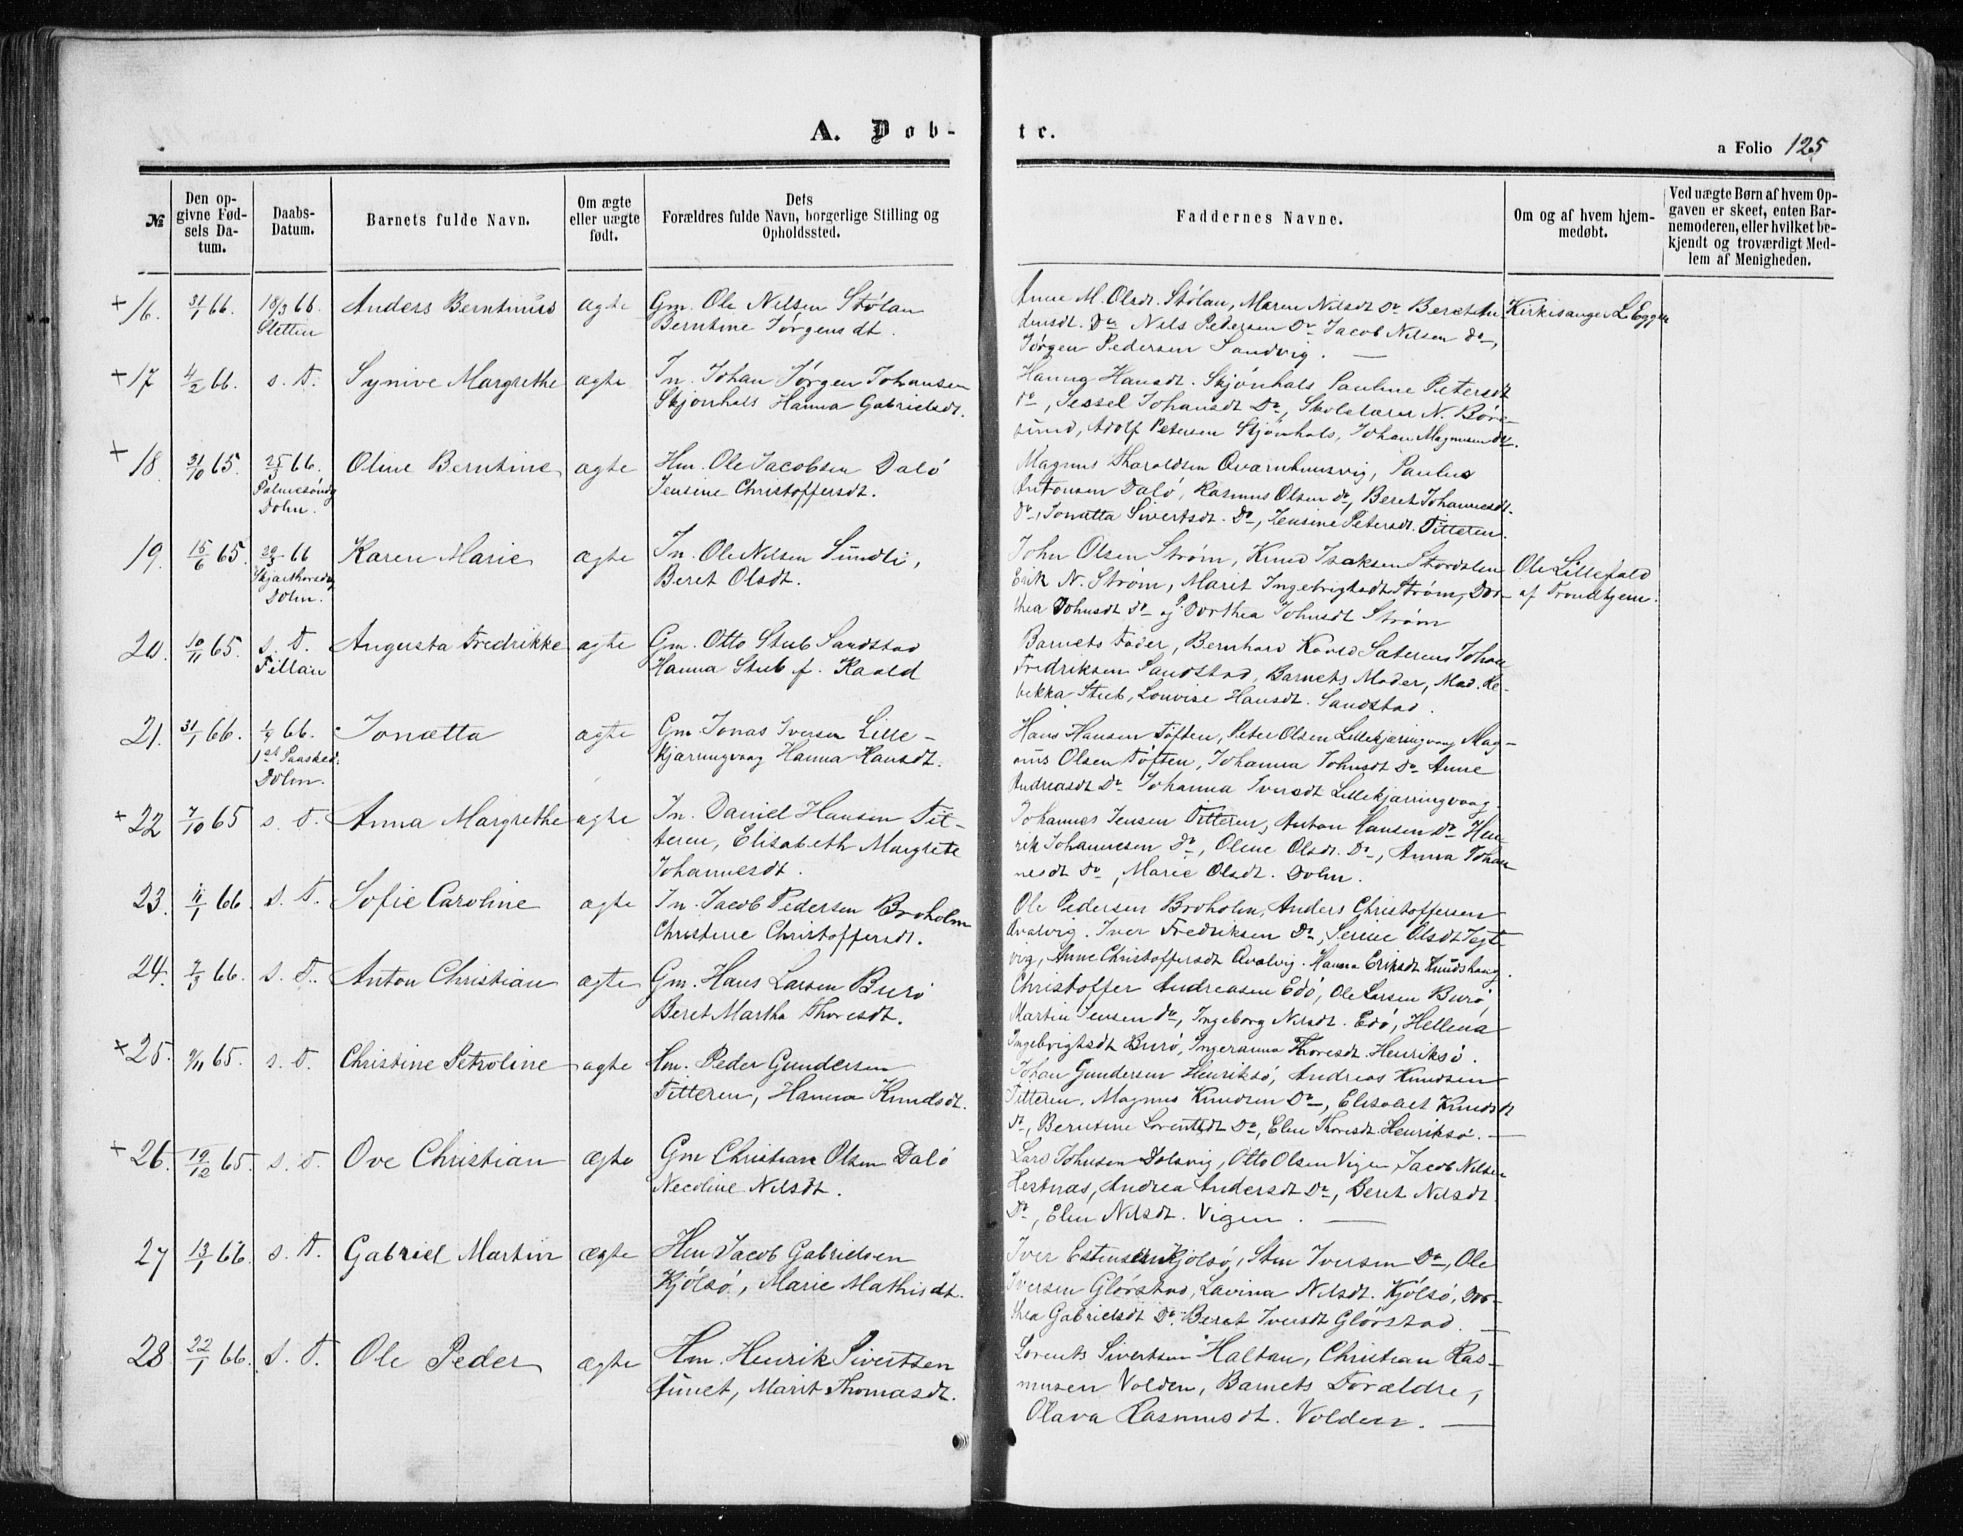 A. Døb-
te.
a Folio 125
№
Den op-
givne Fød-
sels Da-
tum.
Daabs-
Datum.
Barnets fulde Navn.
Om ægte
eller uægte
født.
Dets
Forældres fulde Navn, borgerlige Stilling og
Opholdssted.
Faddernes Navne.
Om og af hvem hjem-
medøbt.
Ved uægte Børn af hvem Op-
gaven er skeet, enten Bar-
nemoderen, eller hvilket be-
kjendt og troværdigt Med-
lem af Menigheden.
+ 16. 31/1 66. 18/3 66 Anders Berntinus ægte Gm. Ole Nilsen Stølan
Sletten Berntine Jørgensdt.
Anne M. Olsdt. Stølan, Maren Nilsdt Do Beret An-
densdt. Do Nils Pedersen Do Jacob Nilsen do,
Jørgen Pedersen Sandvig. —
Kirkesanger L. Eggen
+ 17 4/2 66. s. D. Synive Margrethe ægte In. Johan Jørgen Johansen
Skjønhals Hanna Gabrielsdt.
Hanna Hansdt. Skjønhals Pauline Petersdt
do, Sessel Johansdt Do, Skolelærer N. Børø-
sund, Adolf Petersen Skjønhals, Johan Magnusen do.
+ 18. 31/10 65. 25/3 66. Oline Berntine ægte Hm. Ole Jacobsen Dalø
Palmesøndg Jensine Christoffersdt.
Dolm.
Magnus Haroldsen Qvarnhuusvig, Paulus
Antonsen Dalø, Rasmus Olsen do, Beret Johannesdt.
Do, Jonetta Sivertsdt. Do, Jensine Petersdt. Titteren.
19. 15/6 65. 29/3 66 Karen Marie ægte In. Ole Nilsen Sundli,
Skjærthorsdag Beret Olsdt.
Dolm.
John Olsen Strøm, Knud Isaksen Stordalen
Erik N. Strøm, Marit Ingebrigtsdt Strøm, Dor-
thea Johnsdt do og Dorthea Johnsdt Strøm
Ole Lillefald
af Trondhjem.
20. 10/11 65. s. D. Augusta Fredrikke ægte Gm. Otto Stub Sandstad
Fillan Hanna Stub f. Kaald
Barnets Fader, Bernhard Kaald Sateren Johan
Fredriksen Sandstad, Barnets Moder, Mad. Re-
bekka Stub, Lovise Hansdt. Sandstad.
21. 31/1 66. 1/4 66. Jonetta ægte Gm. Jonas Iversen Lille-
1st Paasked. kjærringvaag Hanna Hansdt.
Dolm.
Hans Hansen Tøften, Peter Olsen Lillekjærringvaag Mag-
nus Olsen Tøften, Johanna Johnsdt Do Anne
Andreasdt Do Johanna Iversdt Lillekjærringvaag.
+ 22 7/10 65 s. D. Anna Margrethe ægte In. Daniel Hansen Tit-
teren, Elisabeth Margrete
Johannesdt.
Johannes Jensen Titteren, Anton Hansen Do Hen-
rik Johannesen Do, Oline Olsdt. Do, Anna Johan
nesdt Do, Marie Olsdt. Dolm.
23. 11/1 66. s. D. Sofie Caroline ægte In. Jacob Pedersen Broholm
Christine Christoffersdt.
Ole Pedersen Broholm, Anders Christoffersen
Qvalvig. Iver Fredriksen Do, Serine Olsdt Jegt-
vig, Anne Christoffersdt Qvalvig. Hanna Eriksdt Knudshaug.
24. 7/3 66. s. D. Anton Christian ægte Gm. Hans Larsen Burø
Beret Martha Thoresdt.
Christoffer Andreasen Edø, Ole Larsen Burø,
Martin Jensen do, Ingeborg Nilsdt. Edø, Hellena
Ingebrigtsdt Burø, Ingeranna Thoresdt. Henriksø.
+ 25. 9/11 65. s. D. Christine Petroline ægte Hm. Peder Gundersen
Titteren, Hanna Knudsdt.
Johan Gundersen Henriksø, Andreas Knudsen
Titteren. Magnus Knudsen Do, Elisabet Knudsdt
Do, Berntine Lorentsdt Do, Elen Thoresdt Henriksø. —
+ 26. 19/12 65. s. D. Ove Christian ægte Gm Christian Olsen Dalø
Necoline Nilsdt.
Lars Johnsen Dolsvig, Otto Olsen Vigen Jacob Nilsen
Hestnas, Andrea Andersdt Do, Beret Nilsdt
Do, Elen Nilsdt. Vigen. —
27 13/1 66. s. D. Gabriel Martin ægte Hm Jacob Gabrielsen
Kjølsø, Marie Mathisdt.
Iver Estensen Kjølsø, Sten Iversen Do, Ole
Iversen Glørstad, Lavina Nilsdt. Kjølsø, Dor-
thea Gabrielsdt Do. Beret Iversdt Glørstad. —
28. 22/1 66. s. D. Ole Peder ægte Hm. Henrik Sivertsen
Aunet, Marit Thomasdt.
Lorents Sivertsen Haltan, Christian Ras-
musen Volden, Barnets Forældre,
Olava Rasmusdt. Volden. —